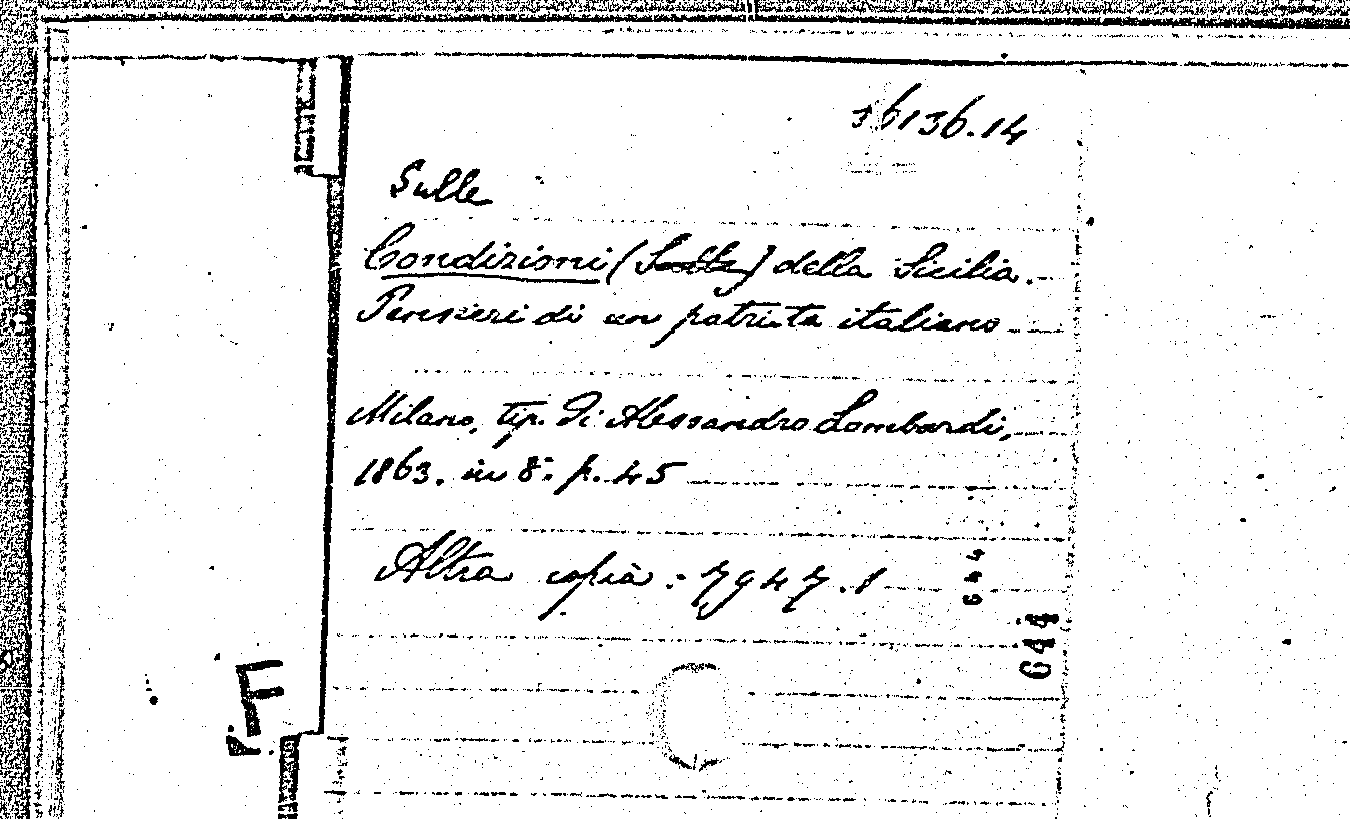 36136.14
Sulle
Condizioni (Sulle) della Sicilia.
Pensieri di un patriota italiano
Milano, tip. di Alessandro Lombardi,
1863. in 8.° p. 45
Altra copia: 7947.1
644
644